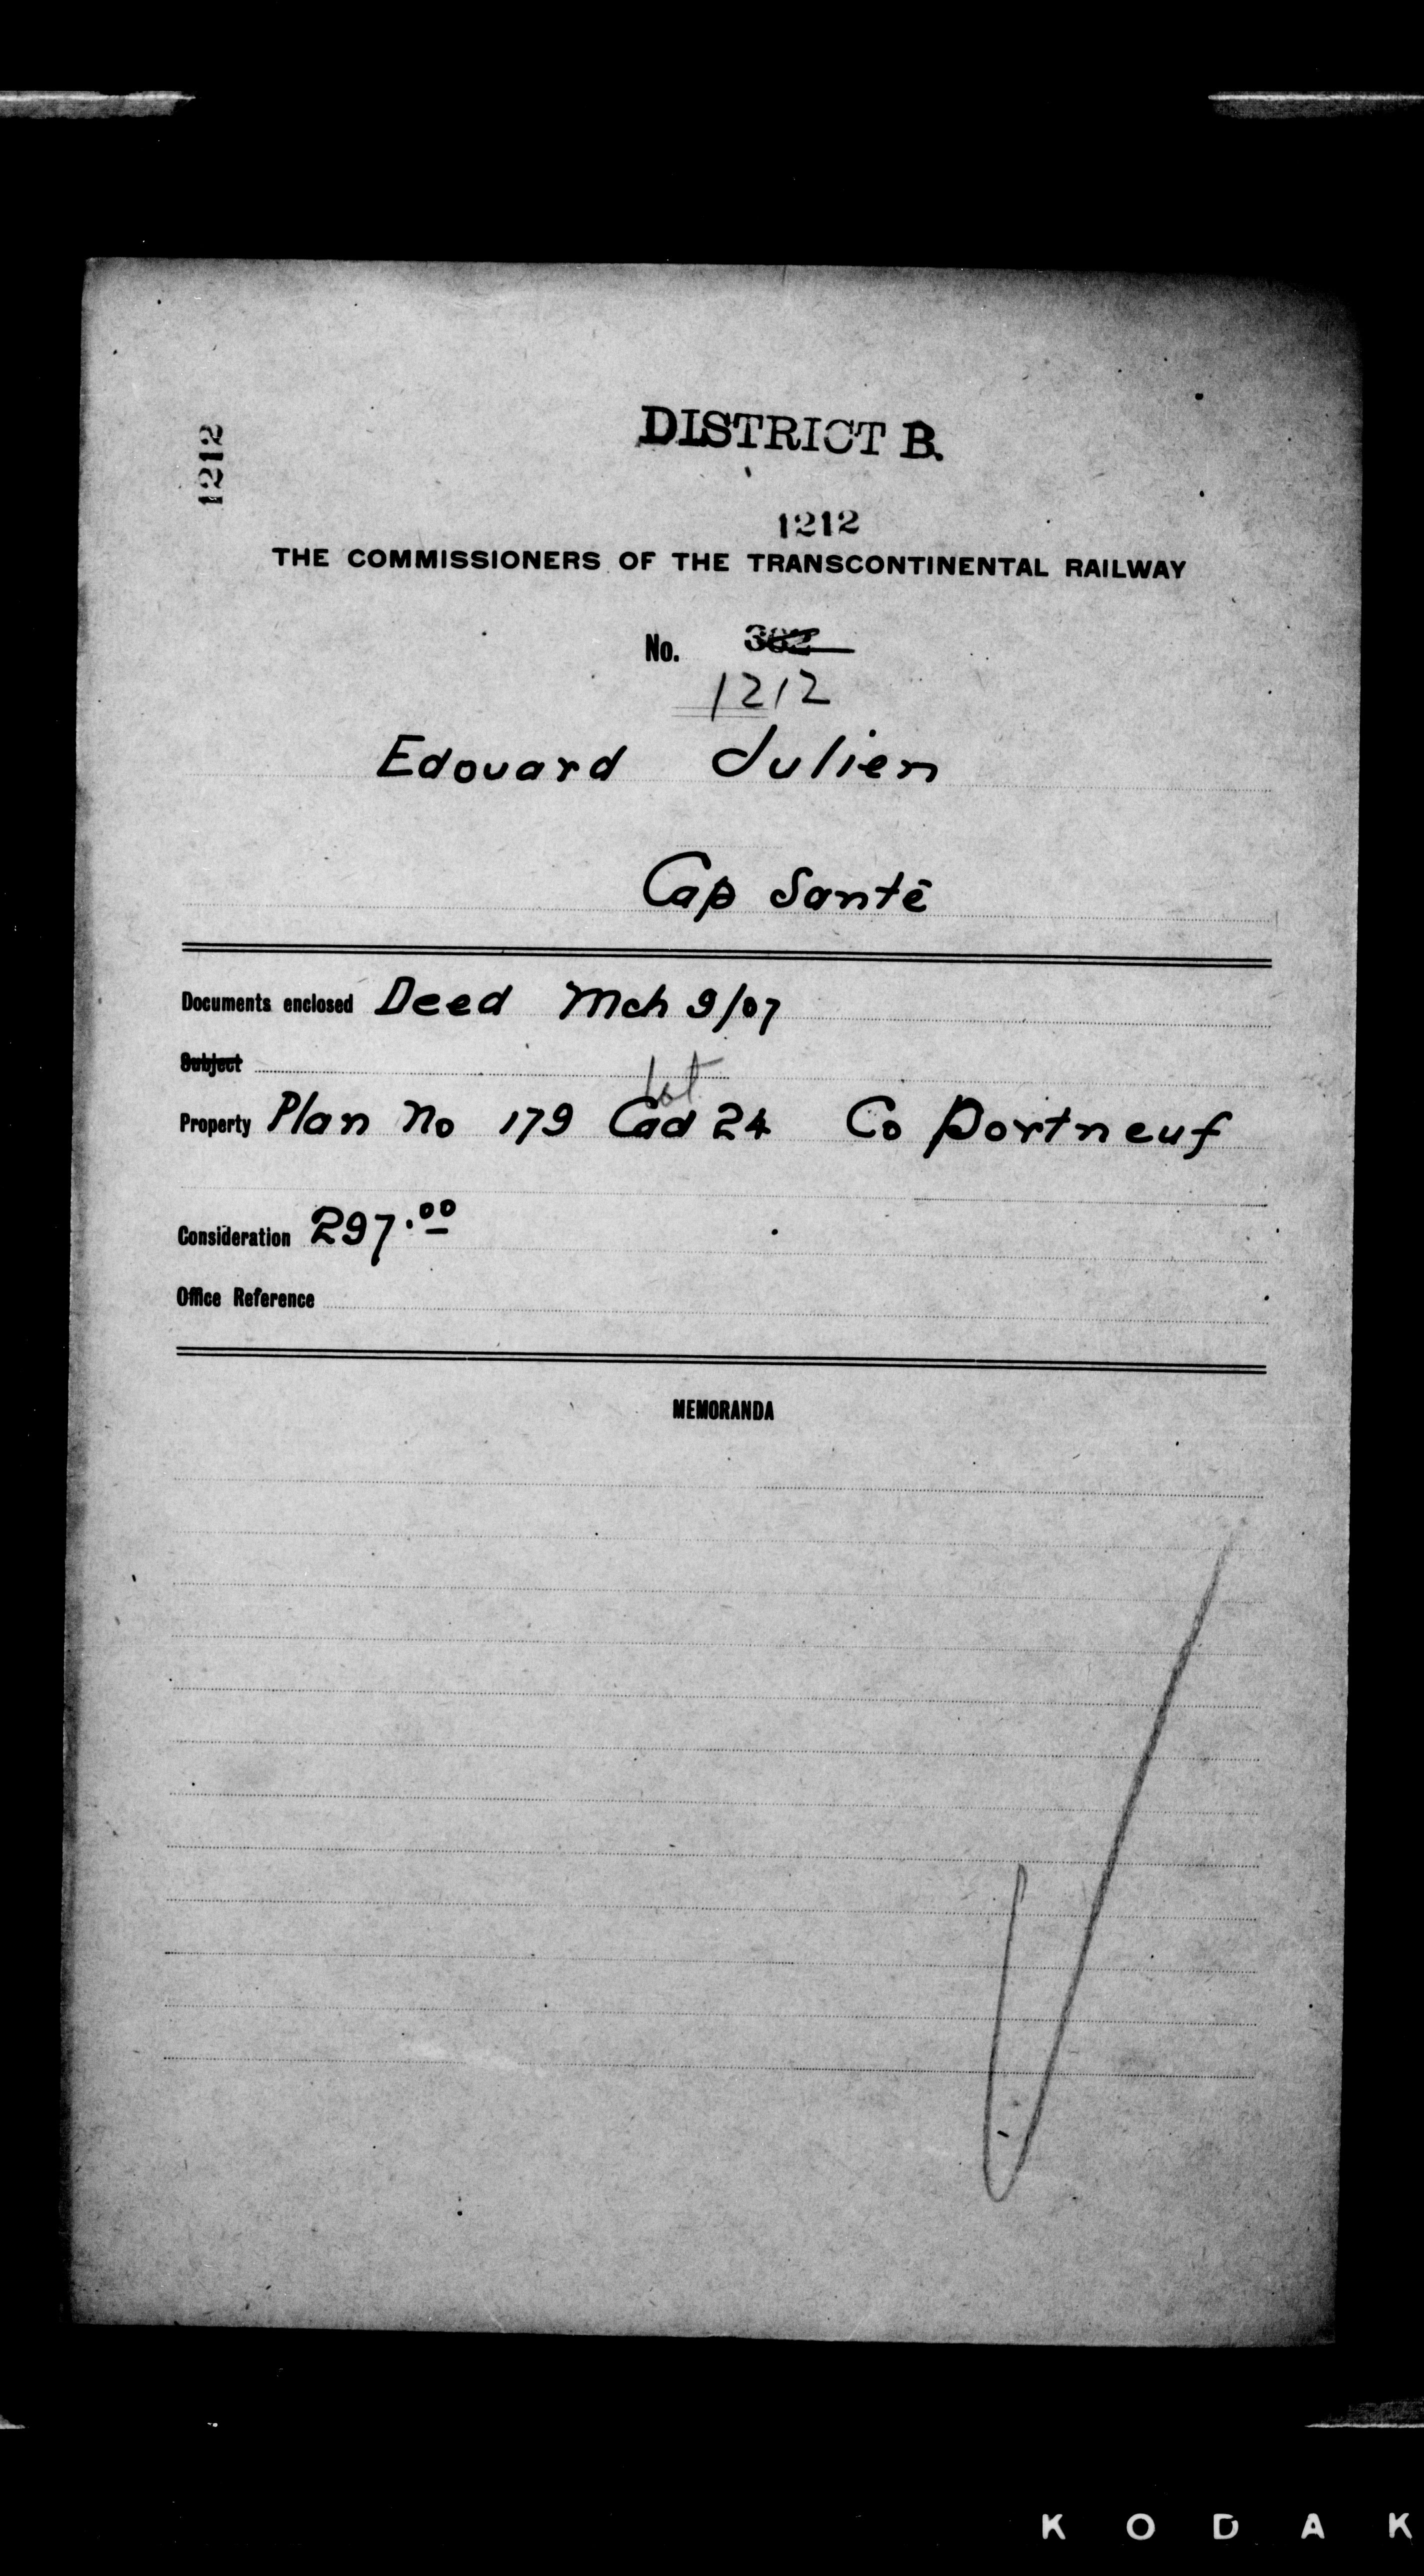 DISTRICT B.
1212
1212
THE COMMISSIONERS OF THE TRANSCONTINENTAL RAILWAY
No. 382
1212
Edouard Julien
Cap Santé
Documents enclosed Deed Mch 9/07
Subject
lot
Property Plan No 179 Cad 24 Co Portneuf
Consideration 297.00
Office Reference
MEMORANDA
KODAK